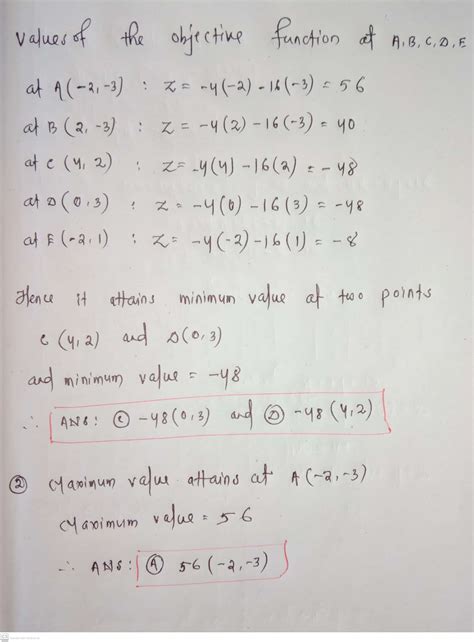 values of the objective function at A, B, C, D, E
at A(-2,-3) : Z = -4(-2) - 16(-3) = 56
at B(2,-3) : Z = -4(2) - 16(-3) = 40
at C(4,2) : Z = -4(4) - 16(2) = -48
at D(0,3) : Z = -4(0) - 16(3) = -48
at E(-2,1) : Z = -4(-2) - 16(1) = -8
Hence it attains minimum value at two points
C(4,2) and D(0,3)
and minimum value = -48
∴ ANS: Ⓒ -48(0,3) and Ⓓ -48(4,2)
② Maximum value attains at A(-2,-3)
Maximum value = 56
∴ ANS: Ⓐ 56(-2,-3)